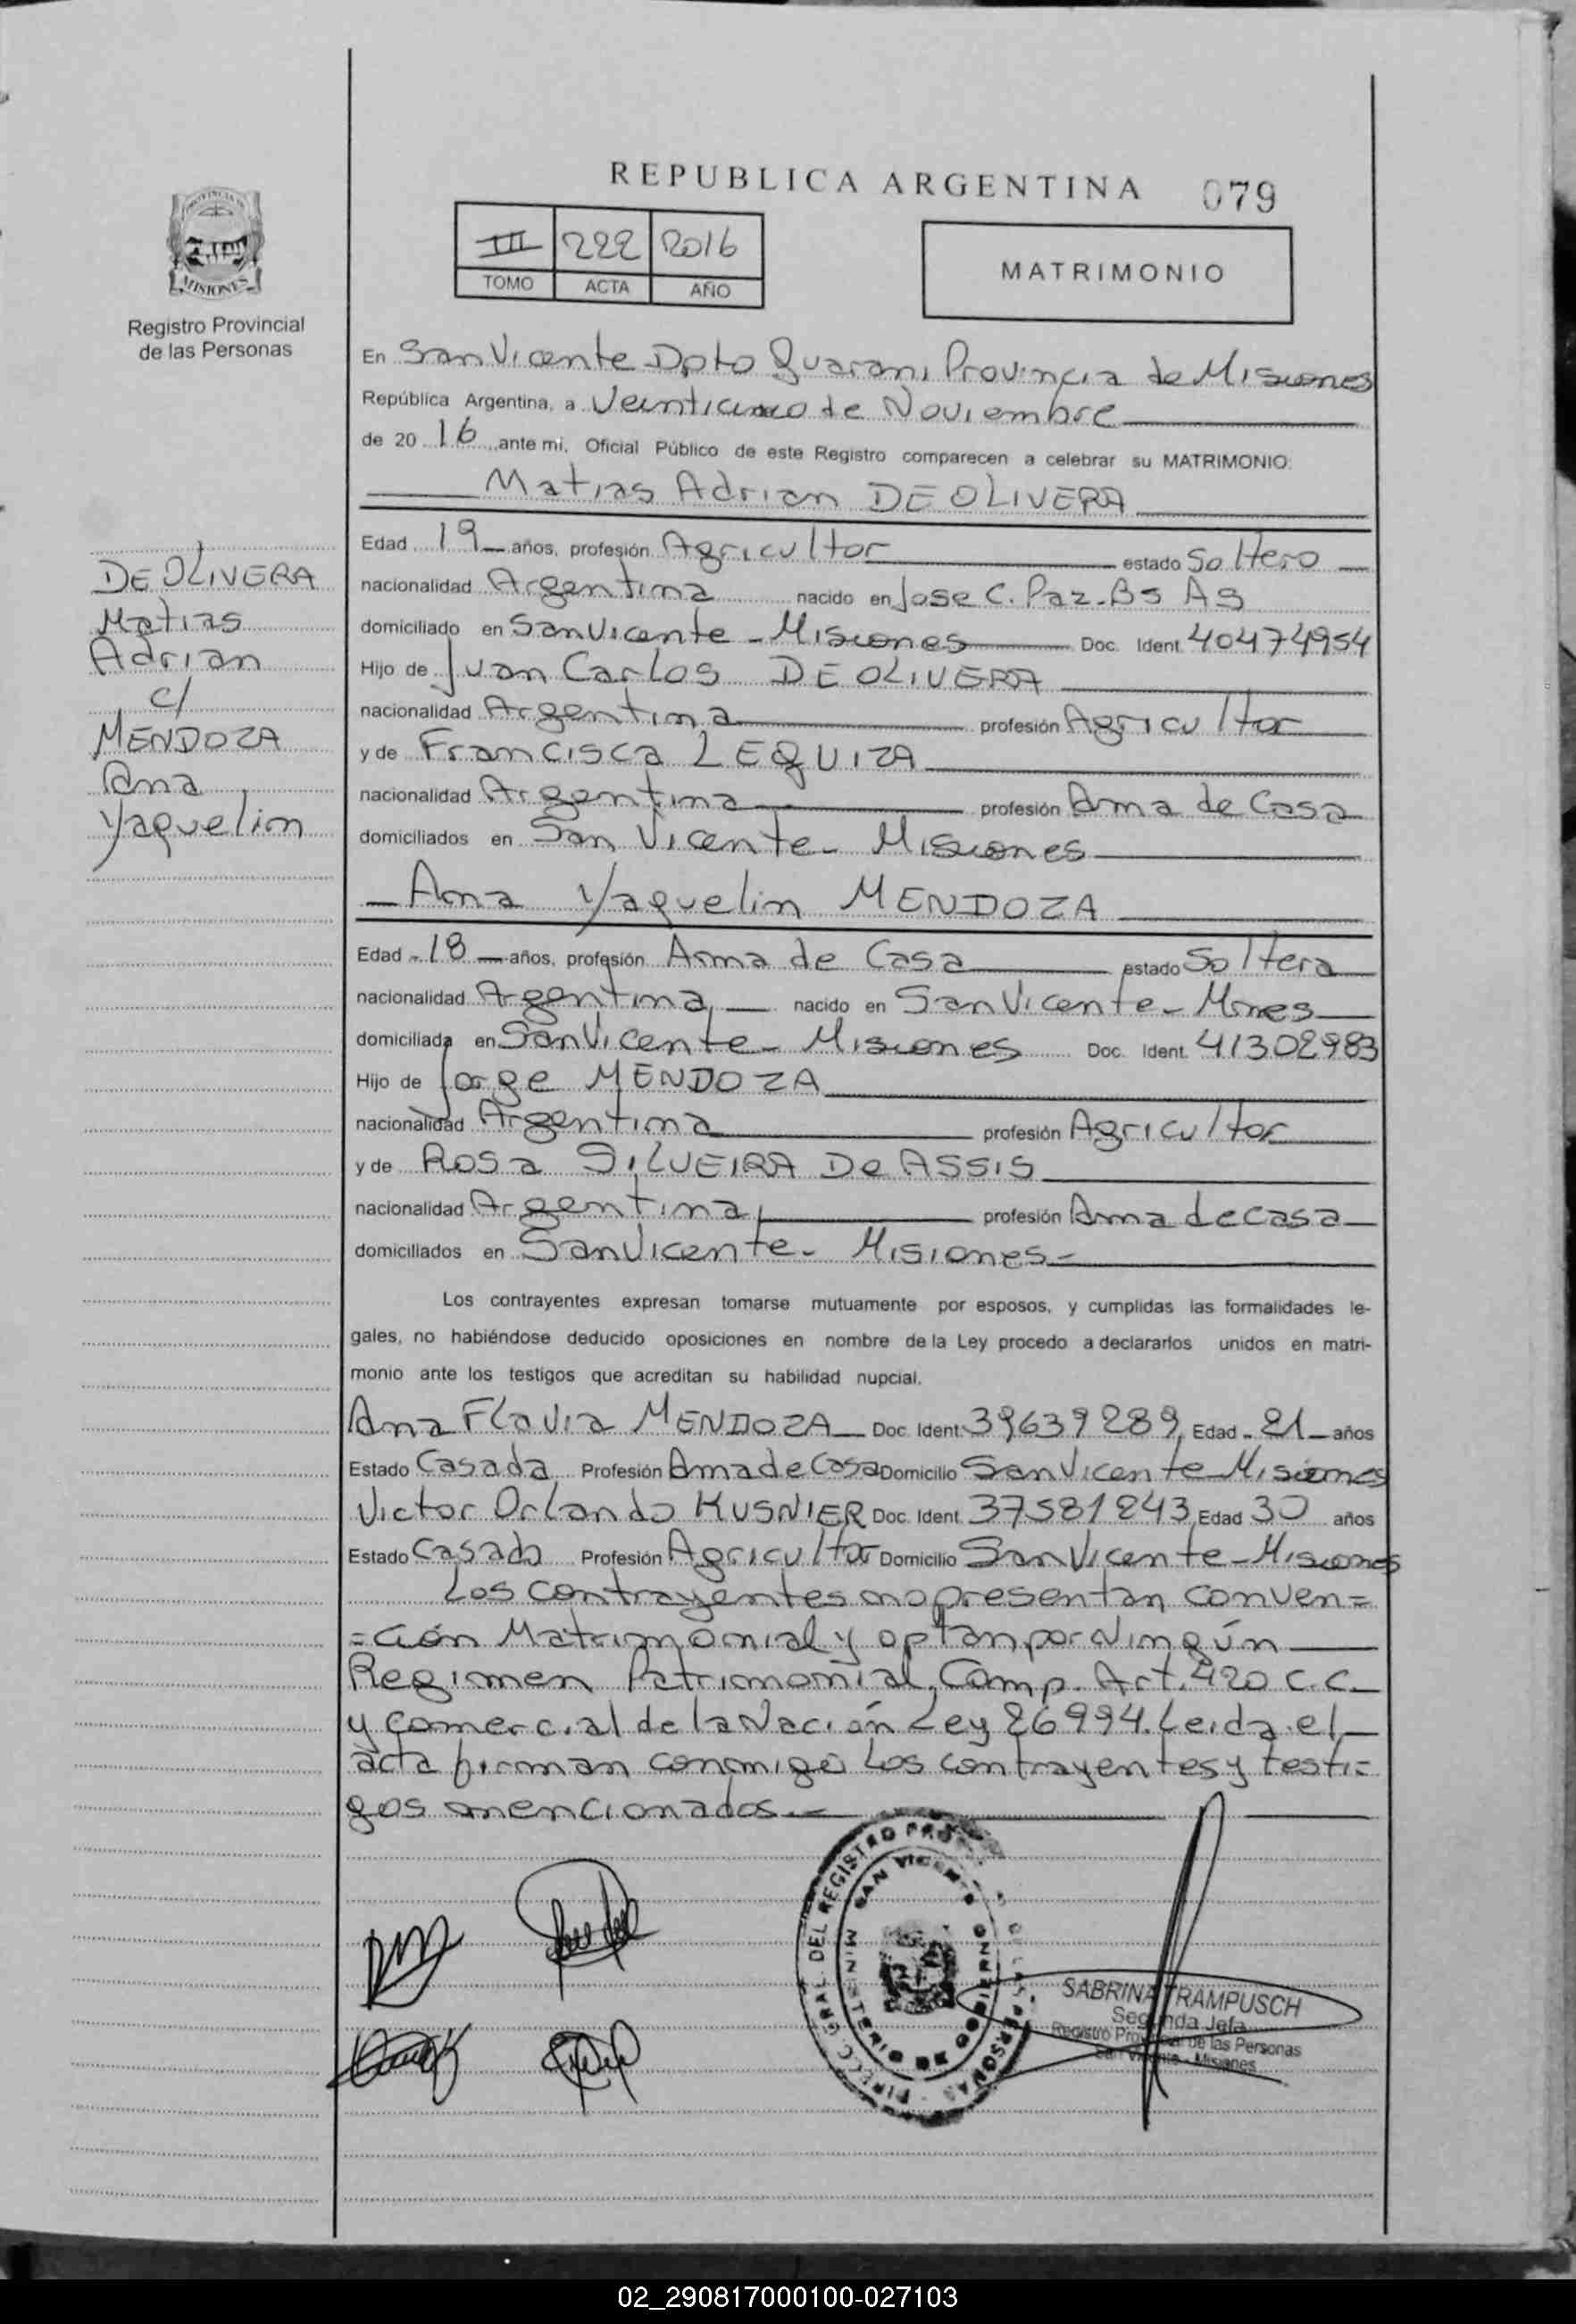 REPUBLICA ARGENTINA 079
III 222 2016
TOMO ACTA AÑO
MATRIMONIO
PROVINCIA DE
MISIONES
Registro Provincial
de las Personas
En San Vicente Dpto Guarani Provincia de Misiones
República Argentina, a Veinticinco de Noviembre
de 20 16 ante mi, Oficial Público de este Registro comparecen a celebrar su MATRIMONIO:
Matias Adrian DE OLIVERA
DE OLIVERA
Matias
Adrian
c/
MENDOZA
Ana
Yaquelin
Edad 19 años, profesión Agricultor estado Soltero
nacionalidad Argentina nacido en Jose C. Paz-Bs As
domiciliado en San Vicente - Misiones Doc. Ident. 40474954
Hijo de Juan Carlos DE OLIVERA
nacionalidad Argentina profesión Agricultor
y de Francisca LEQUIZA
nacionalidad Argentina profesión Ama de Casa
domiciliados en San Vicente - Misiones
Ana Yaquelin MENDOZA
Edad 18 años, profesión Ama de Casa estado Soltera
nacionalidad Argentina nacido en San Vicente - Mnes
domiciliada en San Vicente - Misiones Doc. Ident. 41302983
Hijo de Jorge MENDOZA
nacionalidad Argentina profesión Agricultor
y de Rosa SILVEIRA De ASSIS
nacionalidad Argentina profesión Ama de casa
domiciliados en San Vicente - Misiones
Los contrayentes expresan tomarse mutuamente por esposos, y cumplidas las formalidades le-
gales, no habiéndose deducido oposiciones en nombre de la Ley procedo a declararlos unidos en matri-
monio ante los testigos que acreditan su habilidad nupcial.
Ana Flavia MENDOZA Doc. Ident. 39639289, Edad 21 años
Estado Casada Profesión Ama de Casa Domicilio San Vicente Misiones
Victor Orlando KUSNIER Doc. Ident. 37581243, Edad 30 años
Estado Casado Profesión Agricultor Domicilio San Vicente - Misiones
Los contrayentes no presentan conven=
=ción Matrimonial y optan por Ningún
Regimen Patrimonial, Comp. Art. 420 C.C.
y Comercial de la Nación Ley 26994. Leida el
acta firman conmigo los contrayentes y testi=
gos mencionados.-
DIRECC. GRAL. DEL REGISTRO PRO
DE LAS PERSONAS
SAN VICENTE
MINISTERIO DE GOBIERNO
SABRINA TRAMPUSCH
Segunda Jefa
Registro Provincial de las Personas
San Vicente - Misiones
02_290817000100-027103